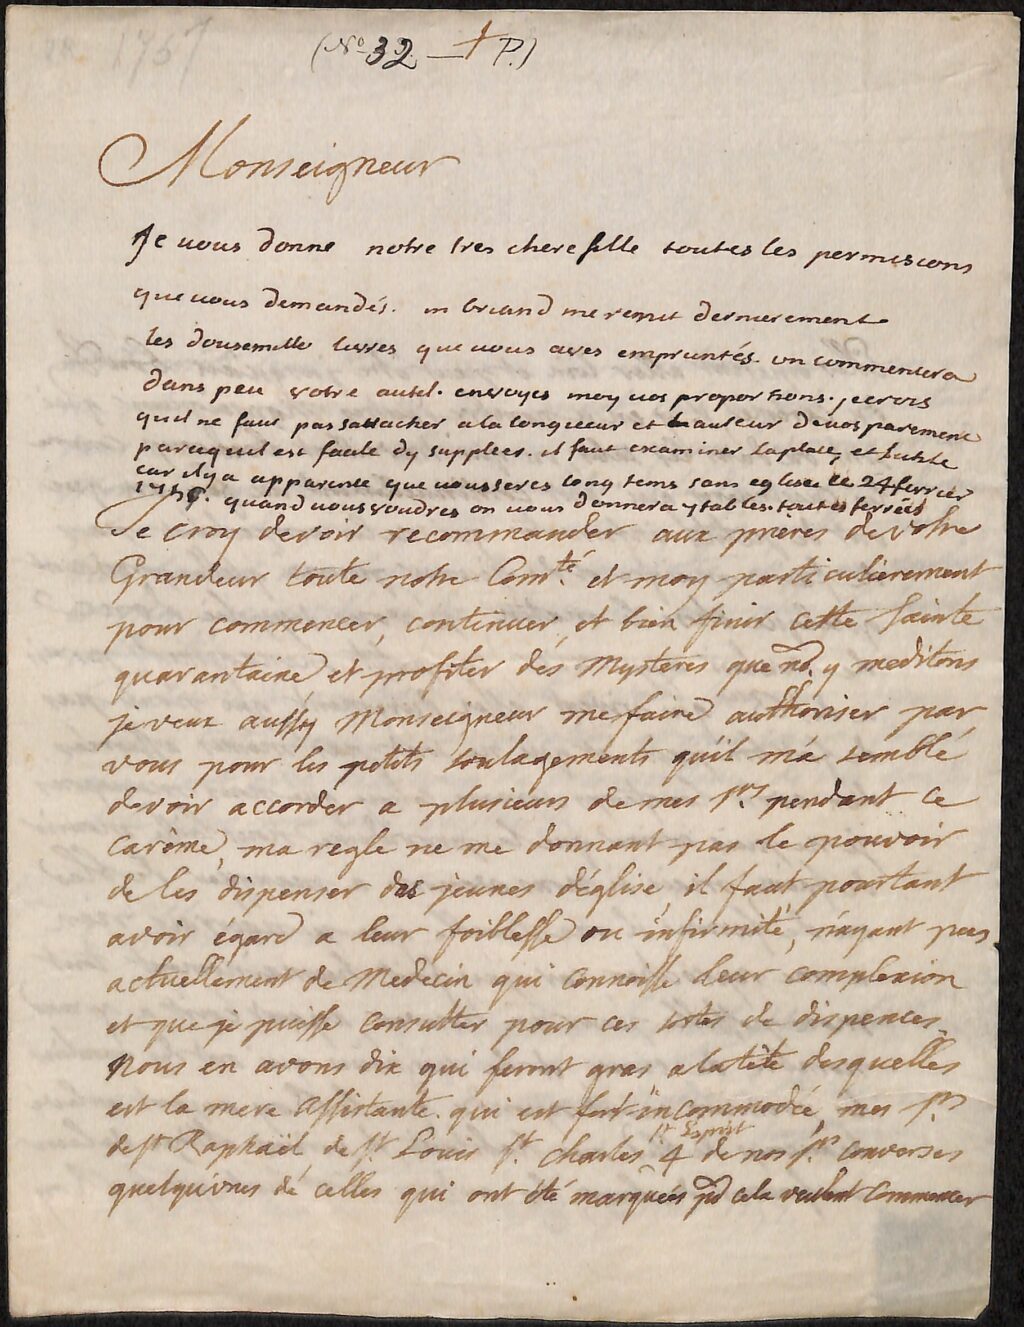 (No. 32 — † P.)
Monseigneur
Je vous donne notre tres chere fille toutes les permissions
que vous demandés. m briand me remit dernierement
les dousemille livres que vous aves empruntés. on commencera
dans peu votre autel. envoyes moy vos proportions. je crois
quil ne faut pas sattacher a la longueur et hauteur de vos parement
parcequil est facile dy supplees. il faut examiner la place, et
car il y a apparence que vous seres long tems sans eglise. le 24 fevrier
quand vous voudres on vous donnera ytables. toutes ferrées
Je croy devoir recommander aux prières de votre
Grandeur toute notre Comté. et moy particulièrement
pour commencer, continuer, et bien finir cette sainte
quarantaine et profiter des Mystères que nō. y meditons
je veux aussy Monseigneur me faire authoriser par
vous pour les petits soulagements qu'il m'a semblé
devoir accorder a plusieurs de mes srs pendant ce
carême, ma regle ne me donnant pas le pouvoir
de les dispenser des jeunes d'église, il faut pourtant
avoir égard a leur foiblesse ou infirmité, n'ayant pas
actuellement de Medecin qui connoisse leur complexion
et que je puisse consulter pour ces sortes de dispences.
Nous en avons dix qui feront gras a la tête desquelles
est la mere Assistante. qui est fort incommodée, mes srs
St Esprit
de st Raphaël de st Louis st. charles 4 de nos srs converses
quelqu'unes de celles qui ont été marquées pd cela veulent commencer